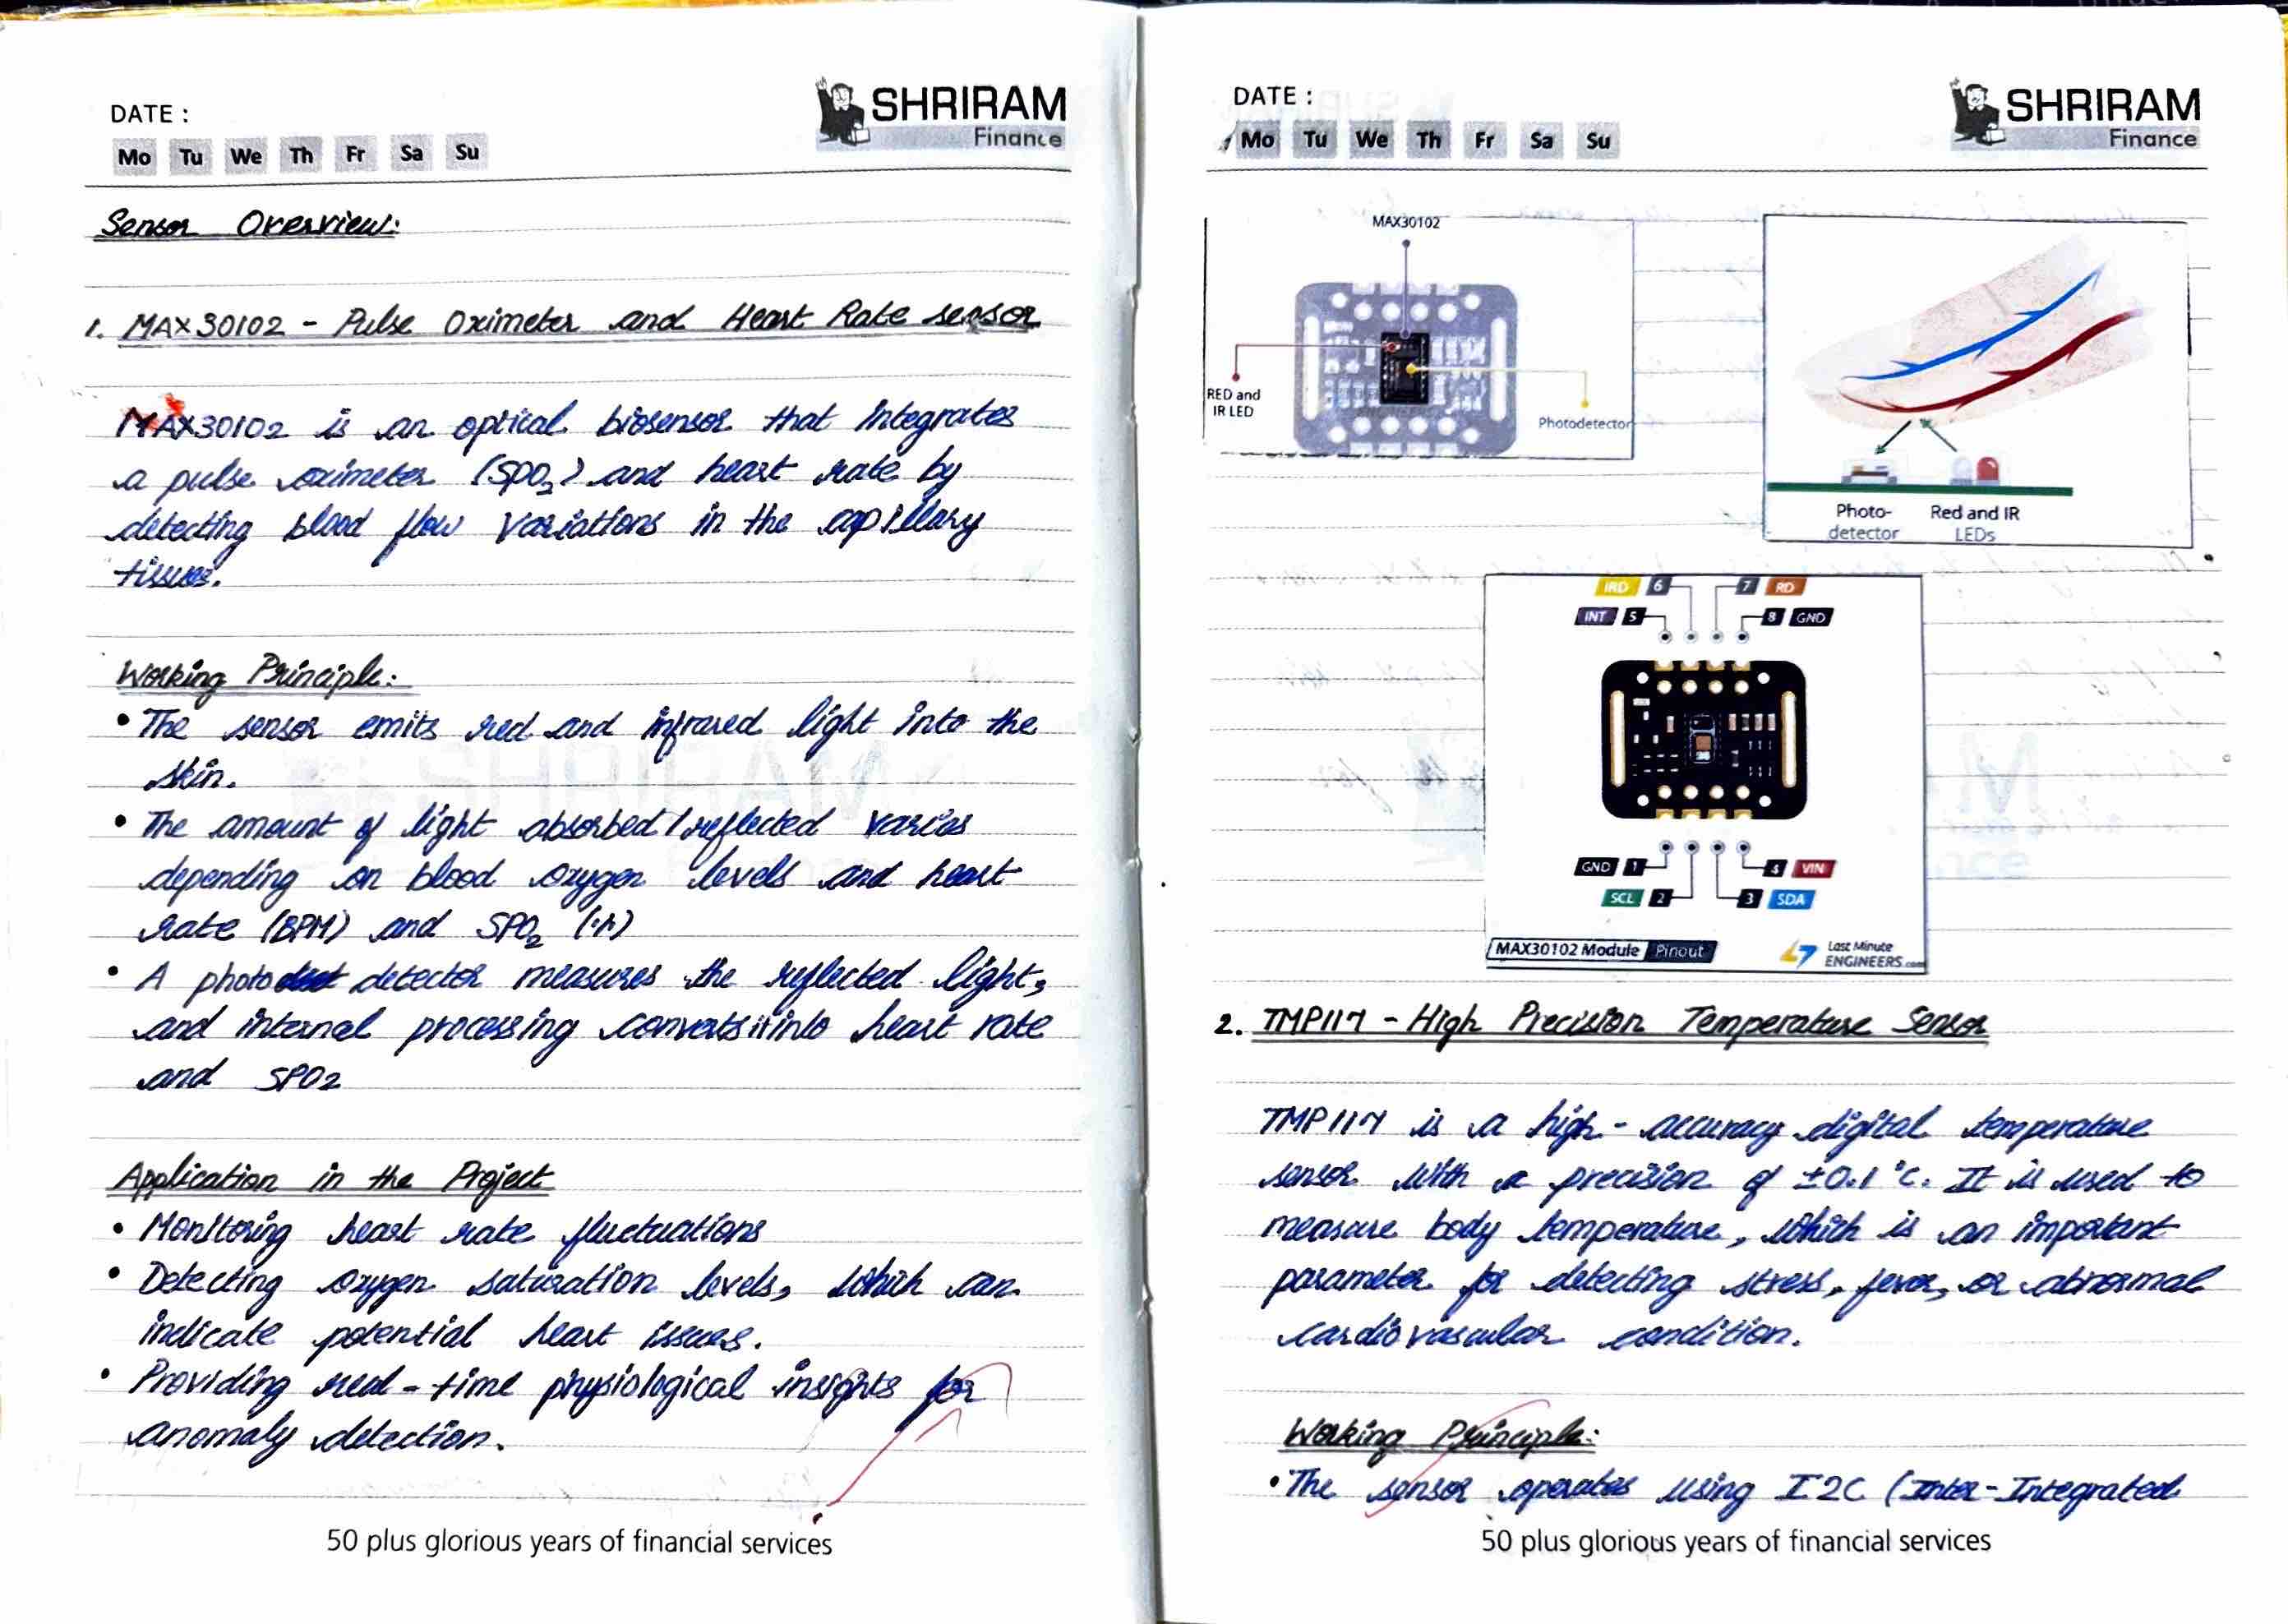 DATE :
SHRIRAM
Finance
Mo Tu We Th Fr Sa Su
Sensor Overview:
1. MAX30102 - Pulse Oximeter and Heart Rate sensor
MAX30102 is an optical biosensor that integrates
a pulse oximeter (SPO₂) and heart rate by
detecting blood flow variations in the capillary
tissues.
Working Principle:
• The sensor emits red and infrared light into the
skin.
• The amount of light absorbed/reflected varies
depending on blood oxygen levels and heart
rate (BPM) and SPO₂ (%)
• A photo detector measures the reflected light,
and internal processing converts it into heart rate
and SPO2
Application in the Project
• Monitoring heart rate fluctuations
• Detecting oxygen saturation levels, which can
indicate potential heart issues.
• Providing real-time physiological insights for
anomaly detection.
50 plus glorious years of financial services
DATE :
SHRIRAM
Finance
Mo Tu We Th Fr Sa Su
MAX30102
RED and
IR LED
Photodetector
Photo-
detector
Red and IR
LEDs
IRD 6 7 RD
INT 5 8 GND
GND 1 4 VIN
SCL 2 3 SDA
MAX30102 Module Pinout
Last Minute
ENGINEERS.com
2. TMP117 - High Precision Temperature Sensor
TMP117 is a high-accuracy digital temperature
sensor with a precision of ±0.1°C. It is used to
measure body temperature, which is an important
parameter for detecting stress, fever, or abnormal
cardiovascular condition.
Working Principle:
• The sensor operates using I2C (Inter-Integrated
50 plus glorious years of financial services